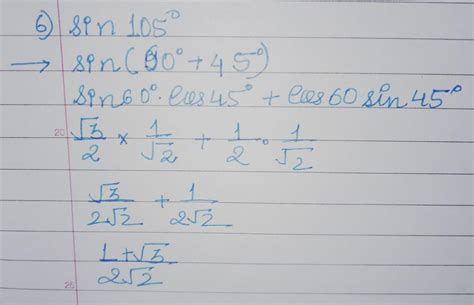 6) sin 105°
→ sin(60° + 45°)
sin60°·cos45° + cos60 sin45°
20 √3/2 × 1/√2 + 1/2 · 1/√2
√3/2√2 + 1/2√2
1+√3/2√2
25